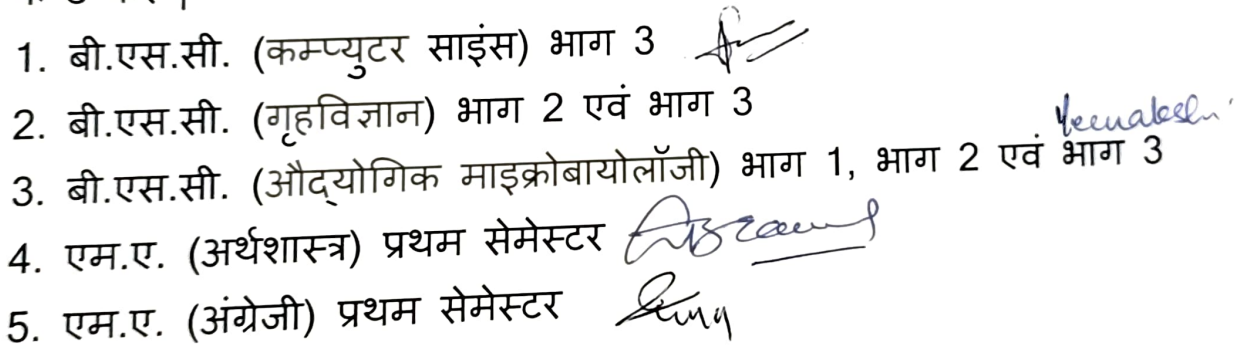 1. बी.एस.सी. (कम्प्युटर साइंस) भाग 3
2. बी.एस.सी. (गृहविज्ञान) भाग 2 एवं भाग 3
3. बी.एस.सी. (औद्योगिक माइक्रोबायोलॉजी) भाग 1, भाग 2 एवं भाग 3
4. एम.ए. (अर्थशास्त्र) प्रथम सेमेस्टर
5. एम.ए. (अंग्रेजी) प्रथम सेमेस्टर